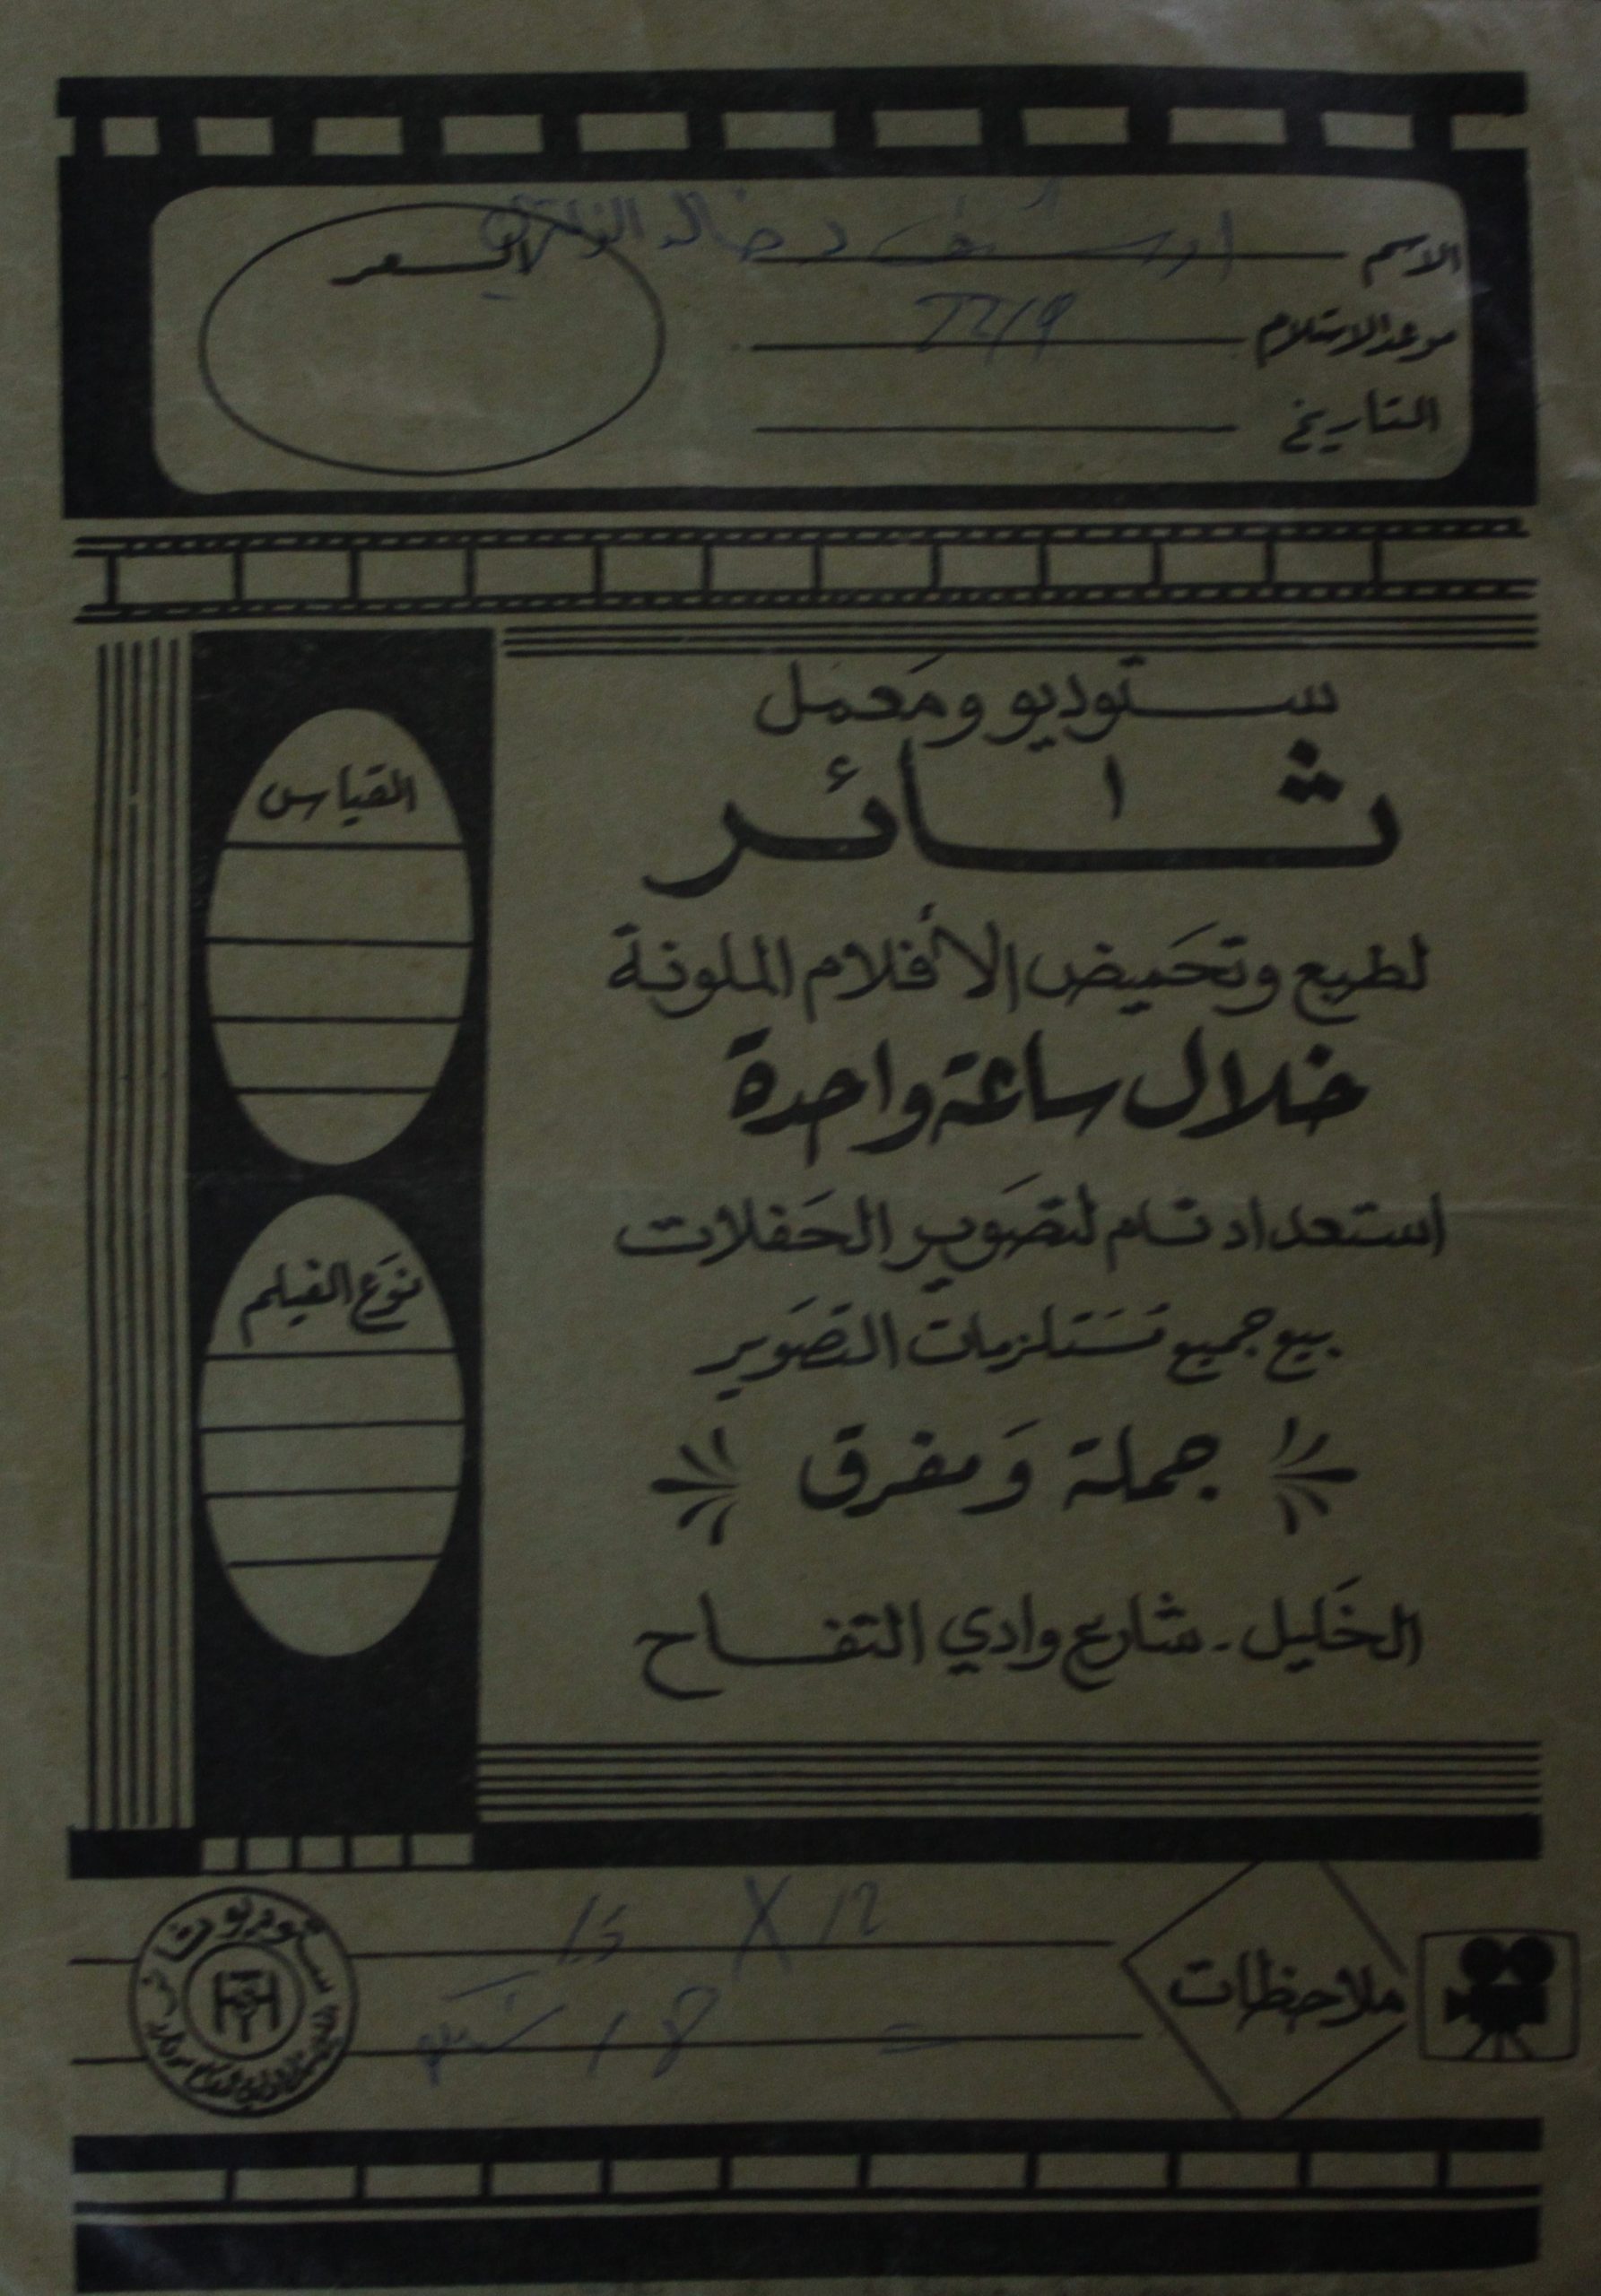 الاسم ارشيف د خالد
السعر
موعد الاستلام 22/9
التاريخ
ستوديو ومعمل
ثائر
لطبع وتحميض الأفلام الملونة
خلال ساعة واحدة
استعداد تام لتصوير الحفلات
بيع جميع تستلزمات التصوير
جملة ومفرق
الخليل - شارع وادي التفاح
القياس
نوع الفيلم
ملاحظات
ستوديو ثائر